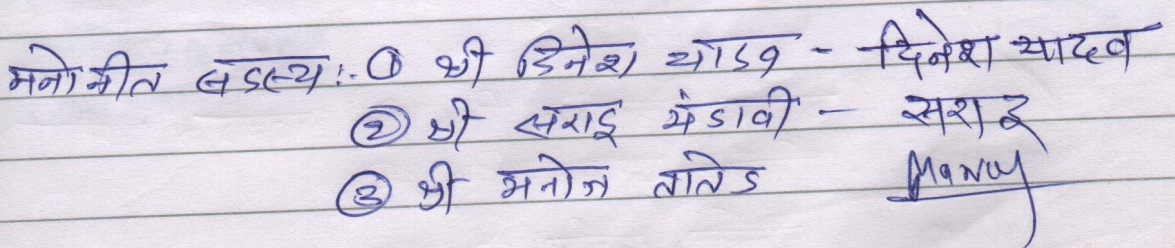 मनोनीत सदस्य :- ① श्री दिनेश यादव - दिनेश यादव
② श्री सराइ मंडावी - सराइ
③ श्री मनोज तातेड Manoj